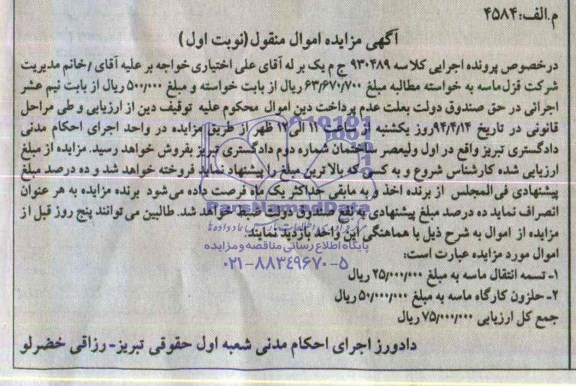 م.الف:۴۵۸۴
آگهی مزایده اموال منقول(نوبت اول)
درخصوص پرونده اجرایی کلاسه ۹۳۰۴۸۹ ج م یک بر له آقای علی اختیاری خواجه بر علیه آقای /خانم مدیریت
شرکت قزل ماسه به خواسته مطالبه مبلغ ۶۳/۶۷۰/۷۰۰ ریال از بابت خواسته و مبلغ ۵۰۰/۰۰۰ ریال از بابت نیم عشر
اجرائی در حق صندوق دولت بعلت عدم پرداخت دین اموال محکوم علیه توقیف دین از ارزیابی و طی مراحل
قانونی در تاریخ ۹۴/۴/۱۴روز یکشنبه از ساعت ۱۱ الی۱۲ ظهر از طریق مزایده در واحد اجرای احکام مدنی
دادگستری تبریز واقع در اول ولیعصر ساختمان شماره دوم دادگستری تبریز بفروش خواهد رسید. مزایده از مبلغ
ارزیابی شده کارشناس شروع و به کسی که بالاترین مبلغ را پیشنهاد نماید فروخته خواهد شد و ده درصد مبلغ
پیشنهادی فی المجلس از برنده اخذ و به مابقی حداکثر یک ماه فرصت داده می شود برنده مزایده به هر عنوان
انصراف نماید ده درصد مبلغ پیشنهادی به نفع صندوق دولت ضبط خواهد شد. طالبین می توانند پنج روز قبل از
مزایده از اموال به شرح ذیل با هماهنگی این واحد بازدید نمایند.
اموال مورد مزایده عبارت است:
۱- تسمه انتقال ماسه به مبلغ ۲۵/۰۰۰/۰۰۰ ریال
۲- حلزون کارگاه ماسه به مبلغ ۵۰/۰۰۰/۰۰۰ ریال
جمع کل ارزیابی ۷۵/۰۰۰/۰۰۰ ریال
دادورز اجرای احکام مدنی شعبه اول حقوقی تبریز- رزاقی خضرلو
ParsNamadData
پایگاه اطلاع رسانی مناقصه و مزایده
۰۲۱-۸۸۳۴۹۶۷۰-۵